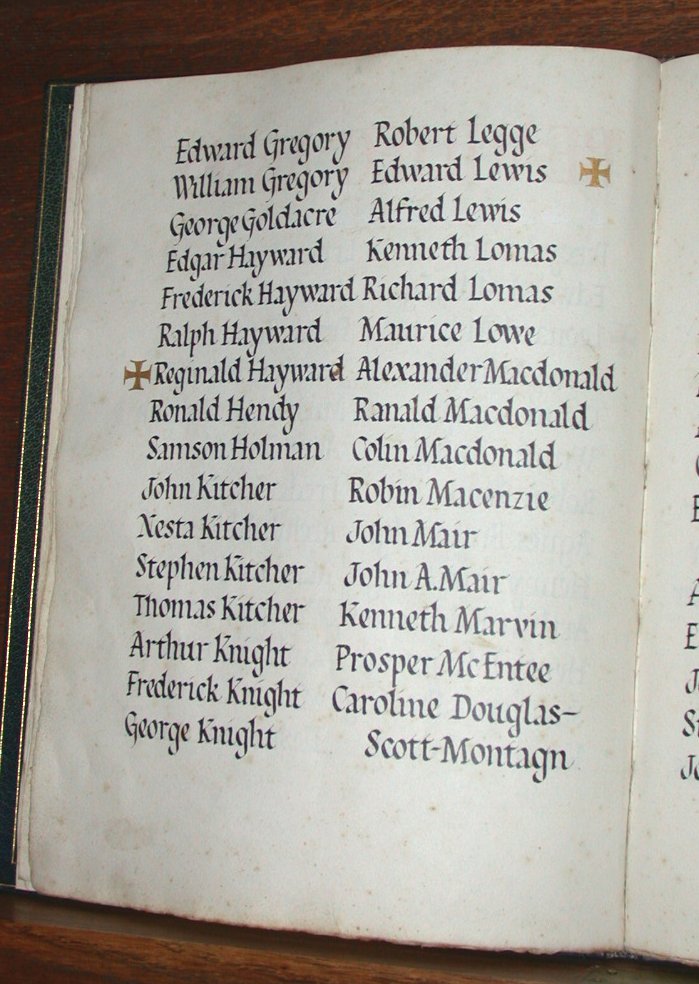 Edward Gregory
William Gregory
George Goldacre
Edgar Hayward
Frederick Hayward
Ralph Hayward
Reginald Hayward
Ronald Hendy
Samson Holman
John Kitcher
Nesta Kitcher
Stephen Kitcher
Thomas Kitcher
Arthur Knight
Frederick Knight
George Knight
Robert Legge
Edward Lewis
Alfred Lewis
Kenneth Lomas
Richard Lomas
Maurice Lowe
Alexander Macdonald
Ranald Macdonald
Colin Macdonald
Robin Macenzie
John Mair
John A. Mair
Kenneth Marvin
Prosper McEntee
Caroline Douglas-
Scott-Montagn